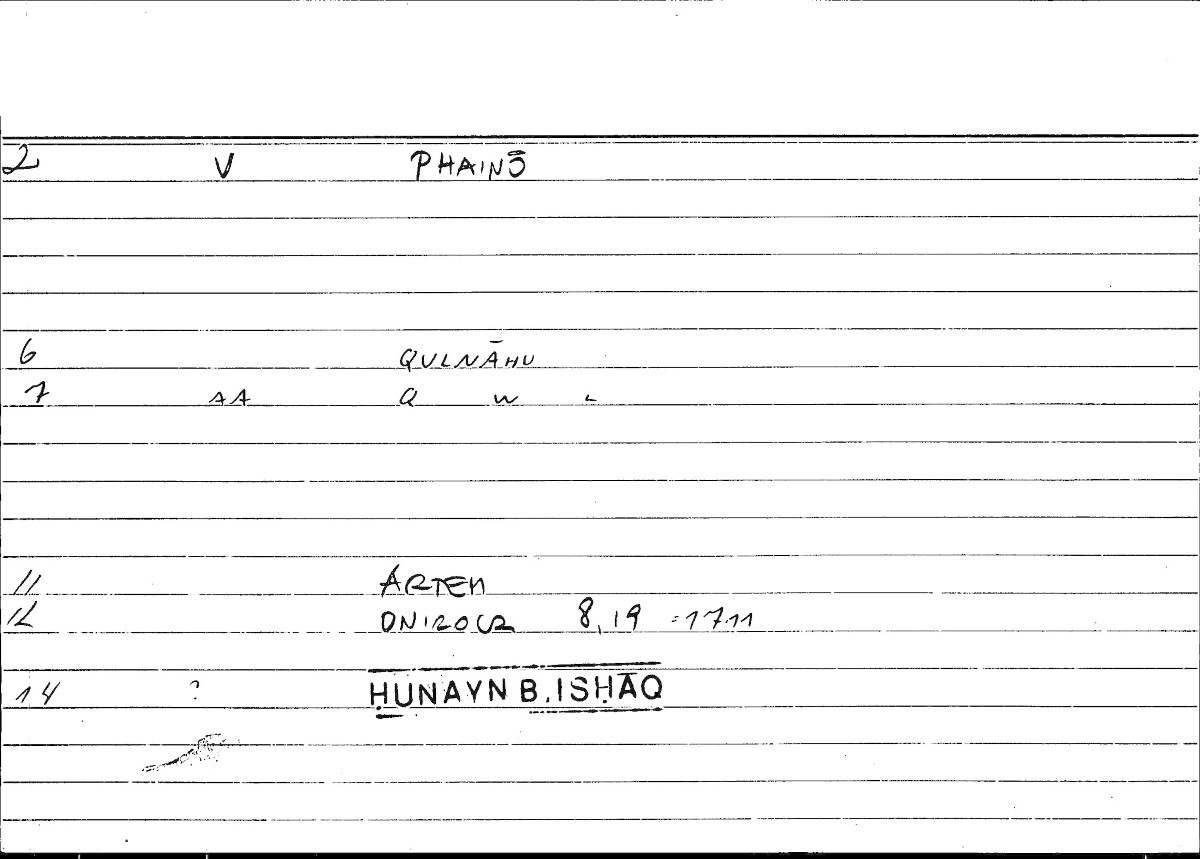 2 V PHAINŌ
6 QULNĀHU
7 AA Q W L
11 ARTEM
12 ONIROCR 8,19 =17.11
14 ? ḤUNAYN B. ISḤĀQ